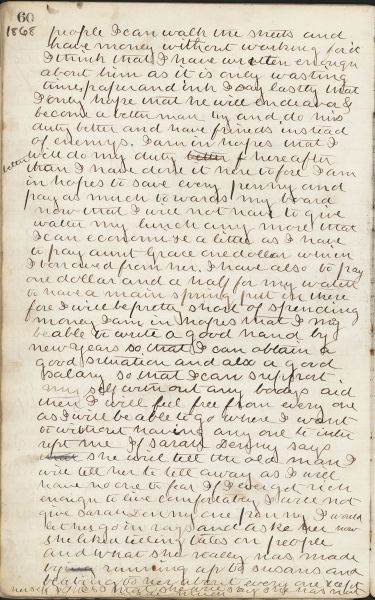 60
1868
people I can walk the streets and
have money without working for it
I think that I have written enough
about him as it is only wasting
time, paper and ink I say lastly that
I only hope that he will endeavor to
become a better man try and do his
duty better and have friends instead
of enemys. I am in hopes that I
will do my duty better hereafter
better
than I have done it heretofore I am
in hopes to save every penny and
pay as much towards my board
now that I will not have to give
walter my lunch any more that
I can economise a little as I have
to pay aunt Grace one dollar which
I borrowed from her, I have also to pay
one dollar and a half for my watch
to have a main spring put in there
fore I will be pretty short of spending
money I am in hopes that I may
be able to write a good hand by
new years so that I can obtain a
good situation and also a good
salary so that I can support
my self without any bodys aid
then I will feel free from every one
as I will be able to go where I want
to without having any one to inter
rupt me If Sarah Denny says
that she will tell the old man I
will tell her to tell away as I will
have no one to fear If I ever get rich
enough to live comfortabley I will not
give Sarah Denny one penny I would
let her go in rags and aske her how
she liked telling tales on people
and what she really has made
by running up to susans and
to her about every one except
herself